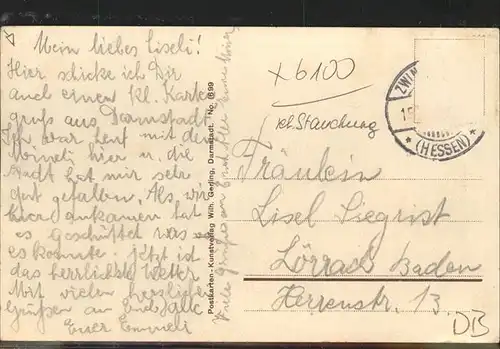 Mein liebes Liseli!
Hier schicke ich Dir
auch einen kl. Karten
gruß aus Darmstadt.
Ich war heut mit dem
hier u. die
Stadt hat mir sehr
gut gefallen. Als wir
hier ankamen hat
es geschüttet was
es konnte. jetzt ist
das herrlichste Wetter
Mit vielen herzlichen
Grüßen an Euch alle
Euer Emmeli
Viele Grüße an
Postkarten-Kunstverlag Wilh. Gerling, Darmstadt. No. 1699
x6100
kl. Stauchung
ZWIN
15
* (HESSEN) *
Fräulein
Lisel Siegrist
Lörrach Baden
Herrenstr. 13.
DB